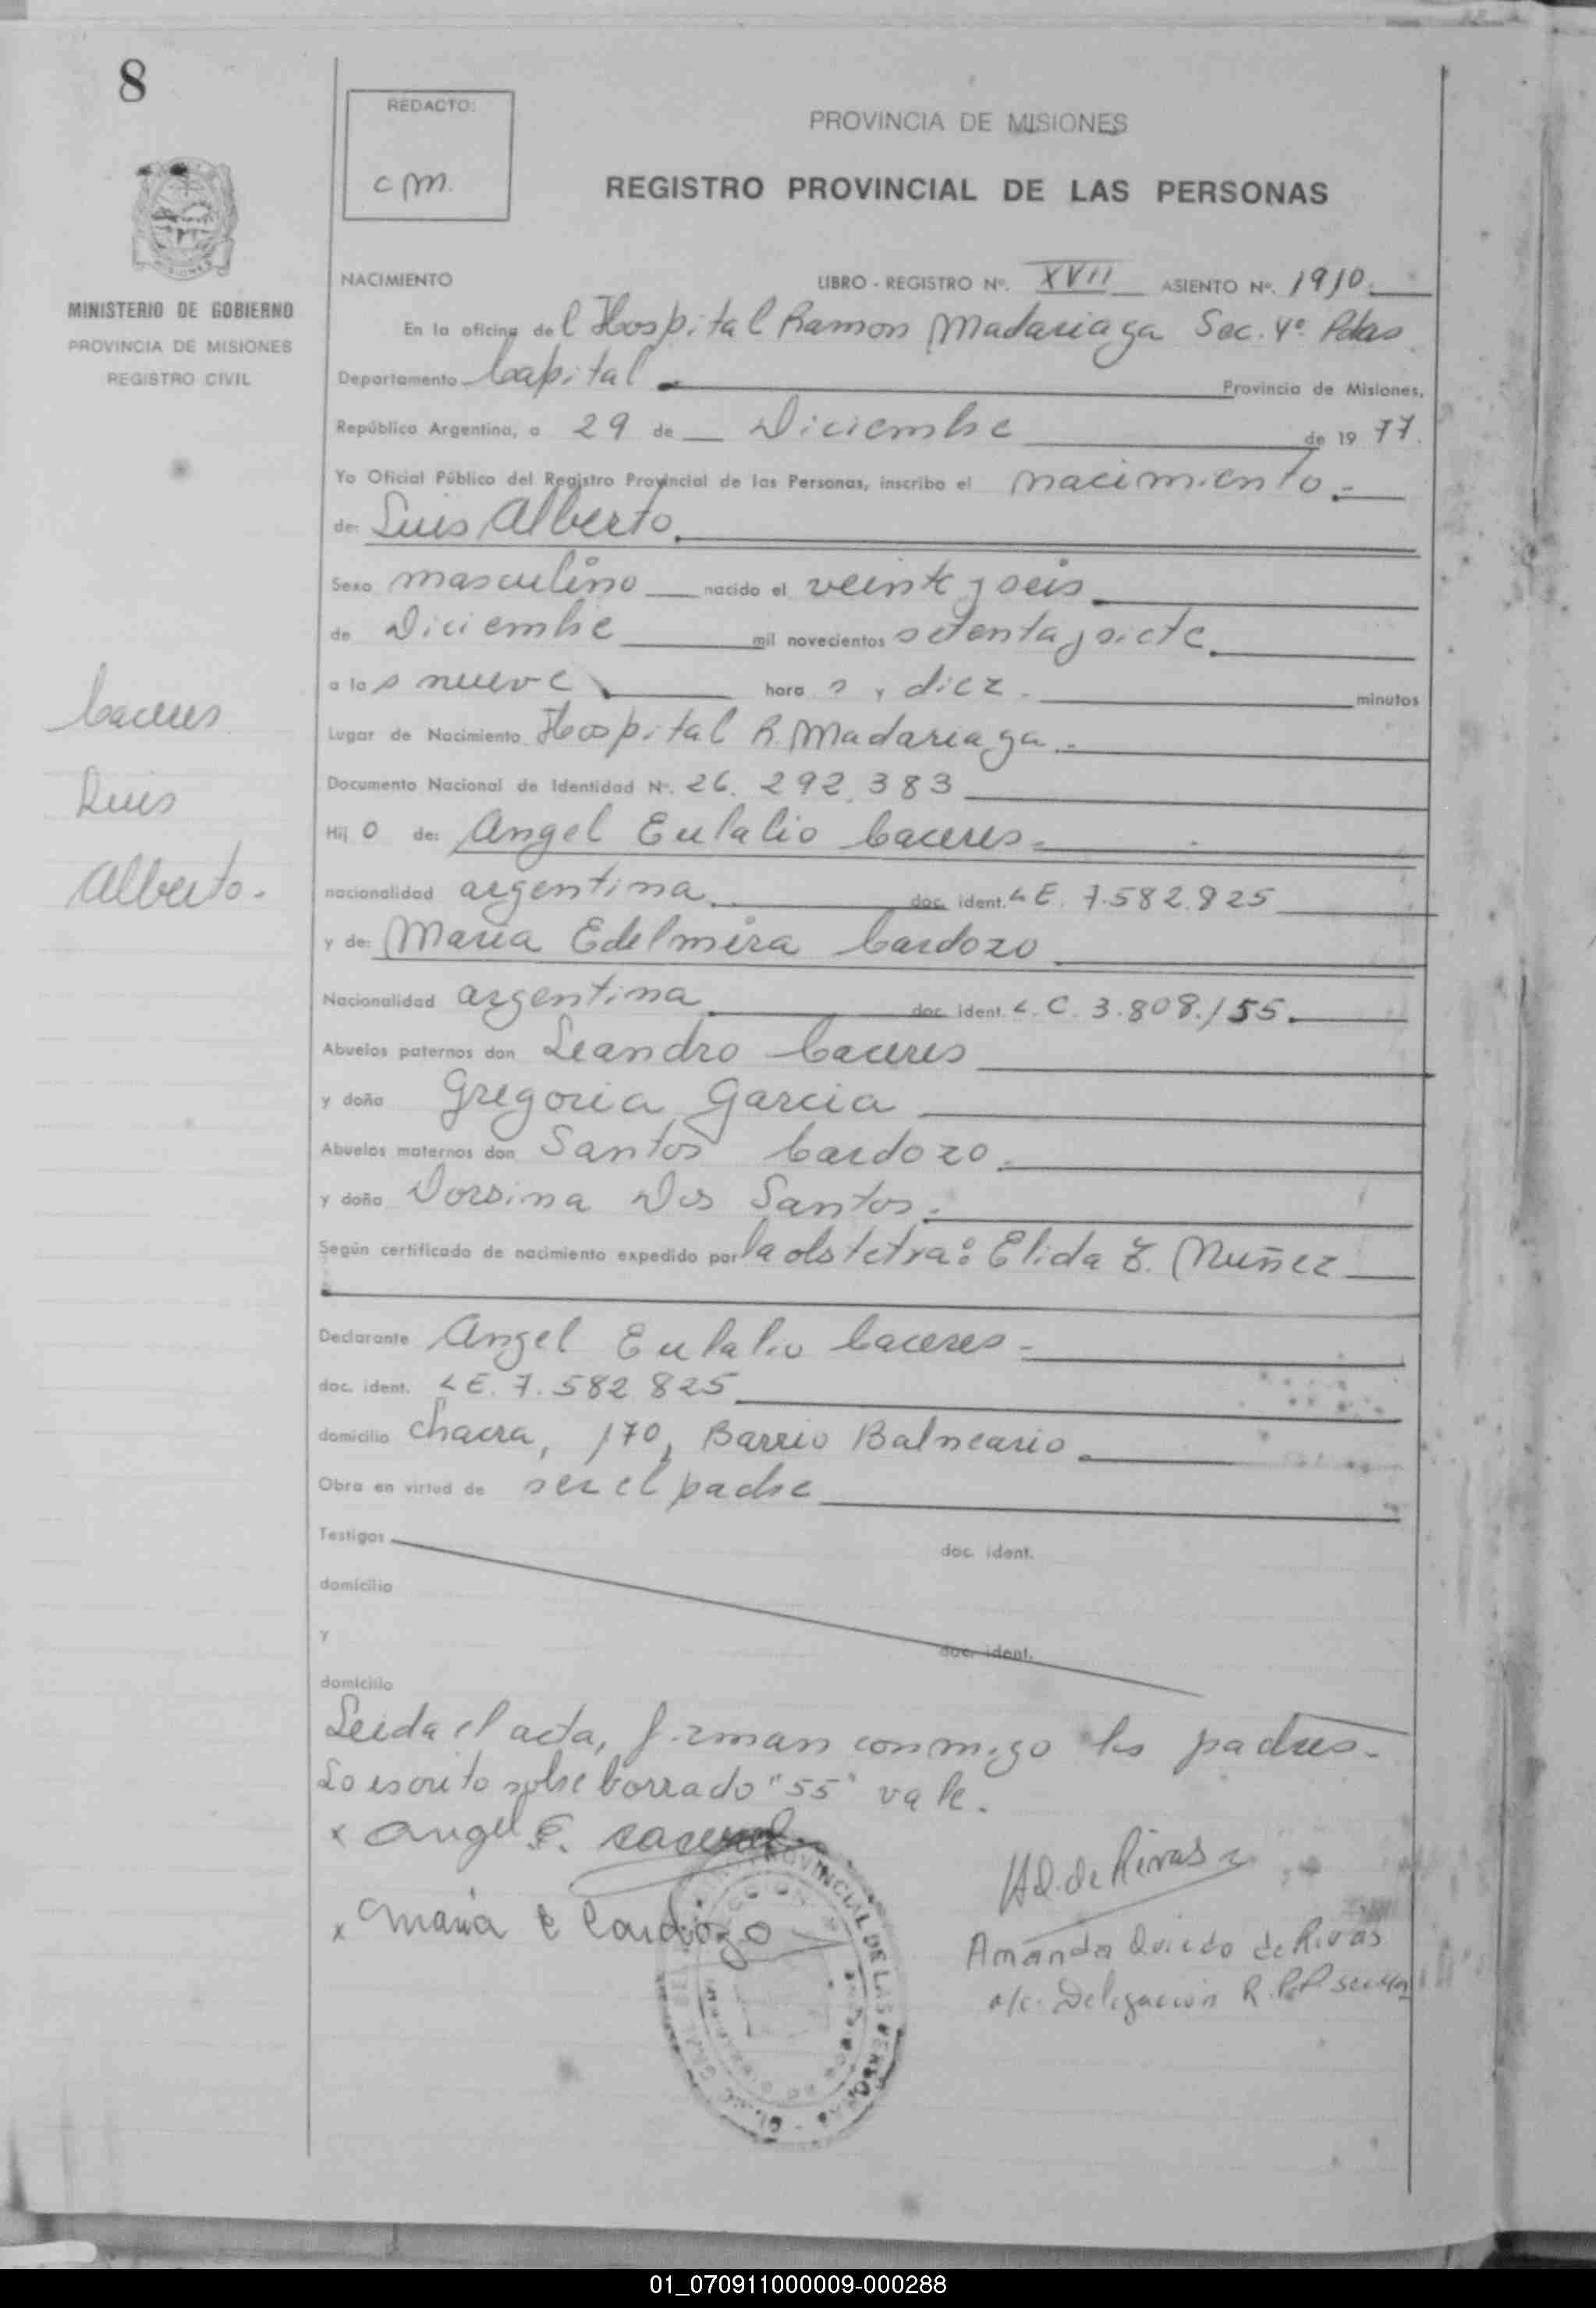 8
REDACTO:
cm.
PROVINCIA DE MISIONES
REGISTRO PROVINCIAL DE LAS PERSONAS
MISIONES
MINISTERIO DE GOBIERNO
PROVINCIA DE MISIONES
REGISTRO CIVIL
NACIMIENTO LIBRO - REGISTRO Nº. XVII ASIENTO Nº. 1910.
En la oficina del Hospital Ramon Madariaga Sec. 4º Pdas
Departamento Capital Provincia de Misiones,
República Argentina, a 29 de Diciembre de 19 77.
Yo Oficial Público del Registro Provincial de las Personas, inscribo el nacimiento.-
de: Luis Alberto
Sexo masculino nacido el veinte y seis
de Diciembre mil novecientos setenta y siete
a las nueve hora s y diez - minutos
Caceres
Luis
Alberto.-
Lugar de Nacimiento Hospital R. Madariaga.-
Documento Nacional de Identidad Nº. 26.292.383
Hij o de: Angel Eulalio Caceres-
nacionalidad argentina doc. ident. L E. 7.582.825
y de: Maria Edelmira Cardozo
Nacionalidad argentina doc. ident. L. C. 3.808.155.
Abuelos paternos don Leandro Caceres
y doña Gregoria Garcia
Abuelos maternos don Santos Cardozo.-
y doña Dorsina Dos Santos.-
Según certificado de nacimiento expedido por la obstetra: Elida Z. Nuñez
Declarante Angel Eulalio Caceres-
doc. ident. L E. 7.582.825
domicilio Chacra, 170, Barrio Balneario
Obra en virtud de ser el padre
Testigos doc. ident.
domicilio
y doc. ident.
domicilio
Leida el acta, firman conmigo los padres.-
Lo escrito sobre borrado "55" vale.
x Angel E. Caceres
x Maria E Cardozo
AO. de Rivas
Amanda Oviedo de Rivas
a/c. Delegación R.P.P
PROVINCIAL DE LAS PERSONAS
01_070911000009-000288